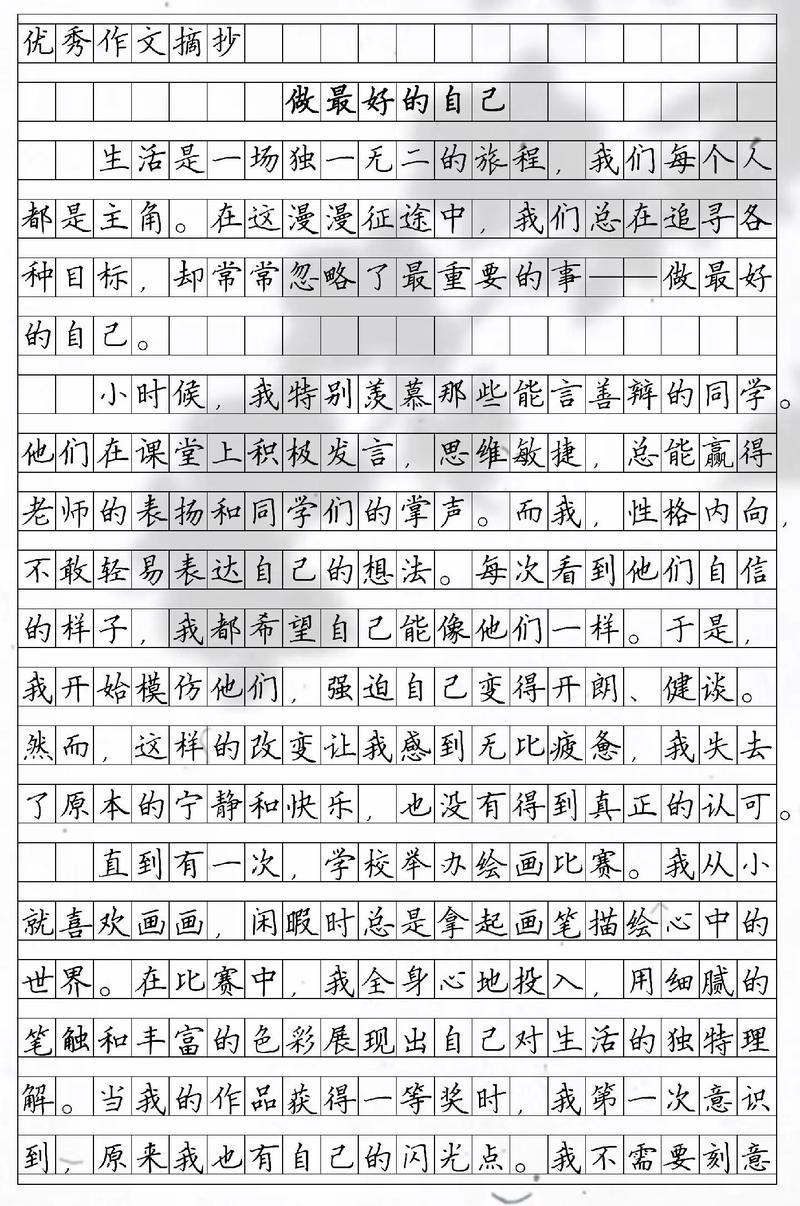 优秀作文摘抄
做最好的自己
生活是一场独一无二的旅程，我们每个人
都是主角。在这漫漫征途中，我们总在追寻各
种目标，却常常忽略了最重要的事——做最好
的自己。
小时候，我特别羡慕那些能言善辩的同学。
他们在课堂上积极发言，思维敏捷，总能赢得
老师的表扬和同学们的掌声。而我，性格内向，
不敢轻易表达自己的想法。每次看到他们自信
的样子，我都希望自己能像他们一样。于是，
我开始模仿他们，强迫自己变得开朗、健谈。
然而，这样的改变让我感到无比疲惫，我失去
了原本的宁静和快乐，也没有得到真正的认可。
直到有一次，学校举办绘画比赛。我从小
就喜欢画画，闲暇时总是拿起画笔描绘心中的
世界。在比赛中，我全身心地投入，用细腻的
笔触和丰富的色彩展现出自己对生活的独特理
解。当我的作品获得一等奖时，我第一次意识
到，原来我也有自己的闪光点。我不需要刻意